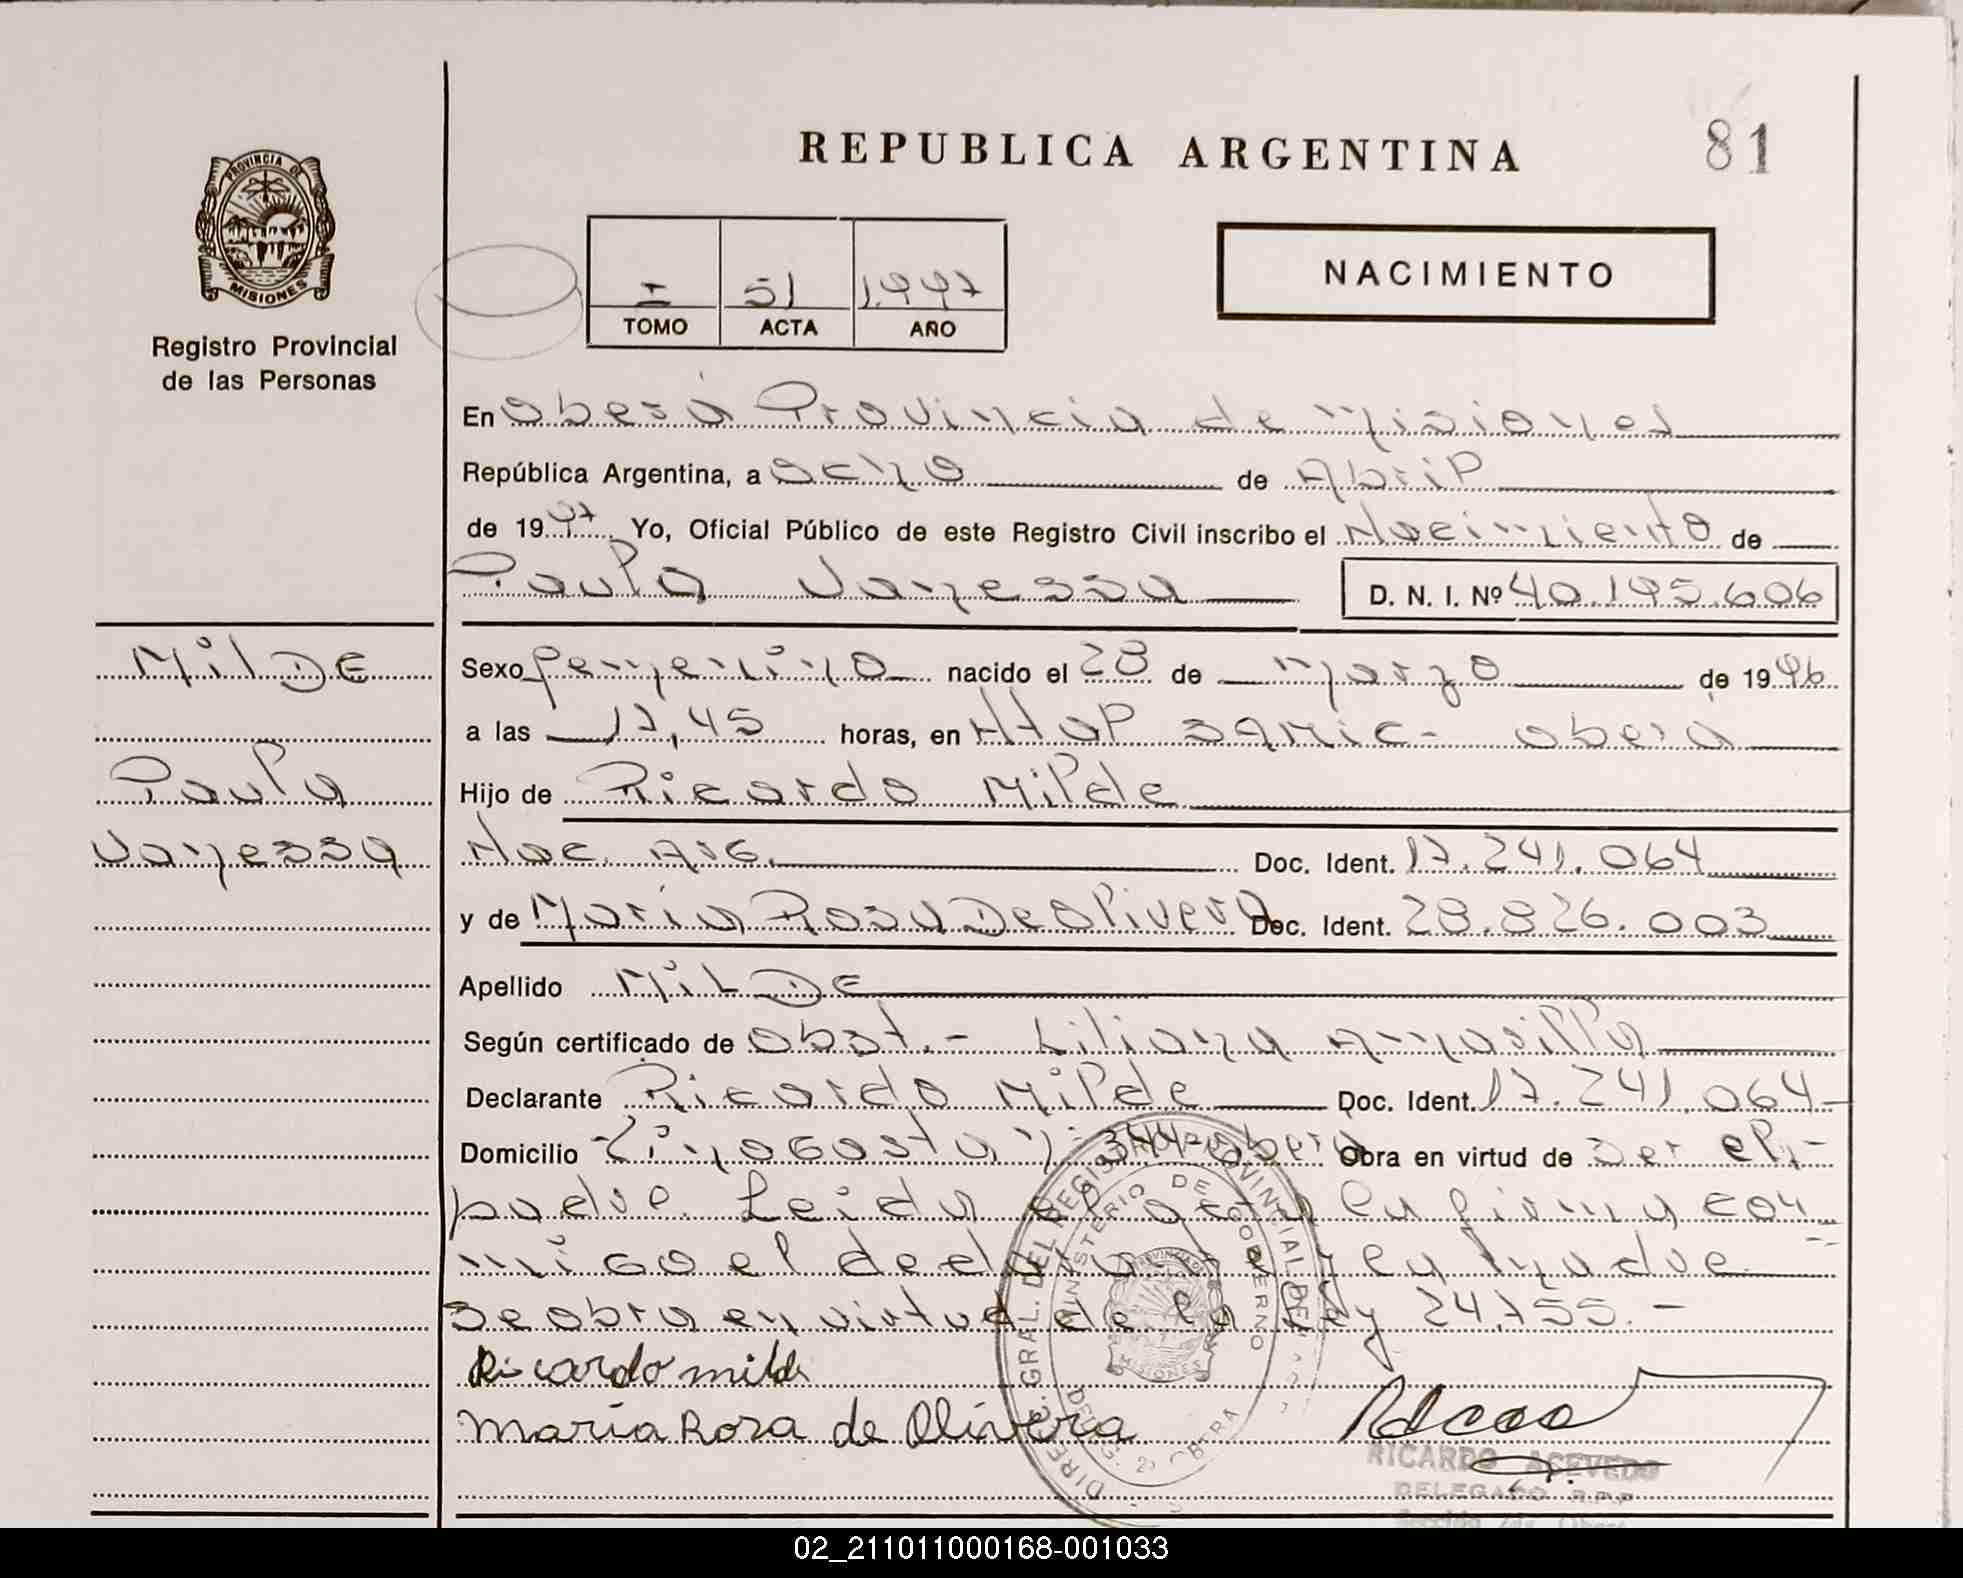 REPUBLICA ARGENTINA
81
PROVINCIA DE
MISIONES
Registro Provincial
de las Personas
I 51 1.997
TOMO ACTA AÑO
NACIMIENTO
En Oberá Provincia de Misiones
República Argentina, a Ocho de Abril
de 1997 Yo, Oficial Público de este Registro Civil inscribo el Nacimiento de
Paula Vanessa D. N. I. Nº 40.195.606
MilDE
Paula
Vanessa
Sexo femenino nacido el 28 de marzo de 1996
a las 17,45 horas, en Htal Samic - Obera
Hijo de Ricardo Milde
Nac. Arg. Doc. Ident. 17.241.064
y de Maria Rosa De Olivera Doc. Ident. 28.826.003
Apellido MILDE
Según certificado de Obst.- Liliana
Declarante Ricardo Milde Doc. Ident. 17.241.064
Domicilio 344- Obera Obra en virtud de ser el
padre. Leida el acta la firma con
migo el declarante y la madre
se obra en virtud de la Ley 24.755.-
Ricardo milde
Maria Rosa de Olivera
DIREC. GRAL. DEL REGISTRO PROVINCIAL DE
MINISTERIO DE GOBIERNO
MISIONES
RICARDO ACEVEDO
DELEGADO R.P.P
02_211011000168-001033